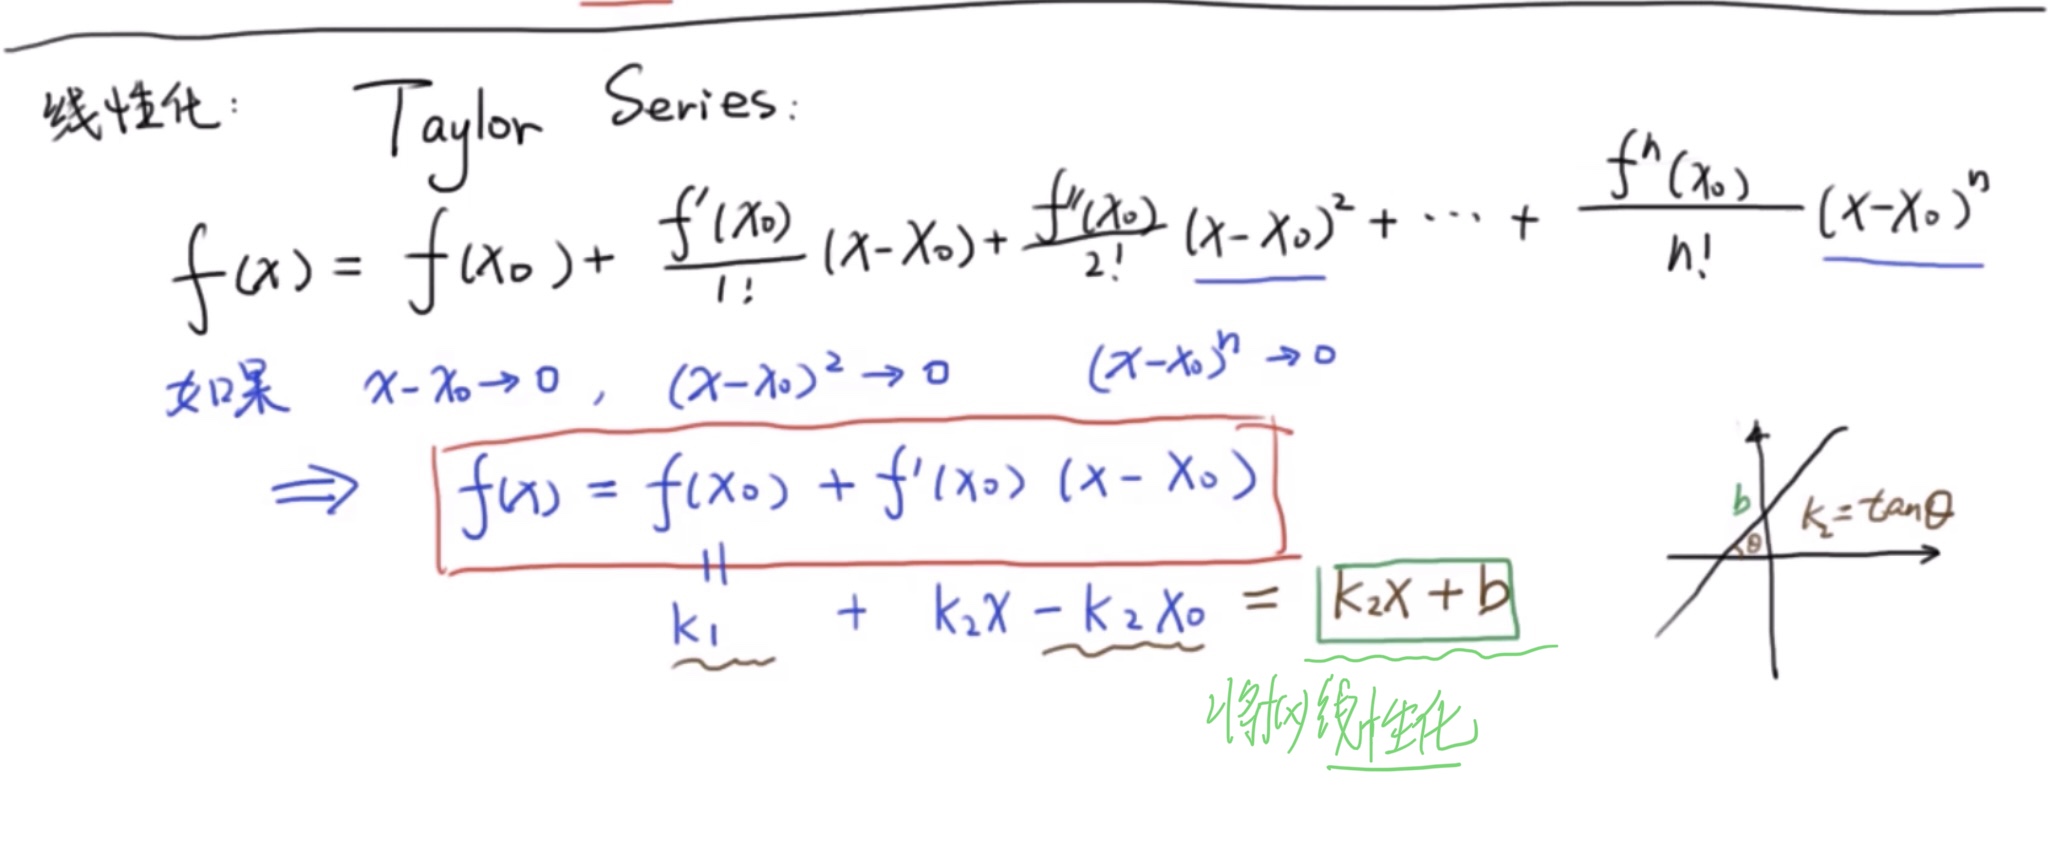 线性化: Taylor Series:
f(x) = f(x₀) + f'(x₀)/1! (x-x₀) + f''(x₀)/2! (x-x₀)² + ····· + fⁿ(x₀)/n! (x-x₀)ⁿ
如果 x-x₀→0 , (x-x₀)²→0 (x-x₀)ⁿ→0
⇒ f(x) = f(x₀) + f'(x₀) (x-x₀)
b k₂=tanθ
θ
||
k₁ + k₂x - k₂x₀ = k₂x + b
将f(x)线性化